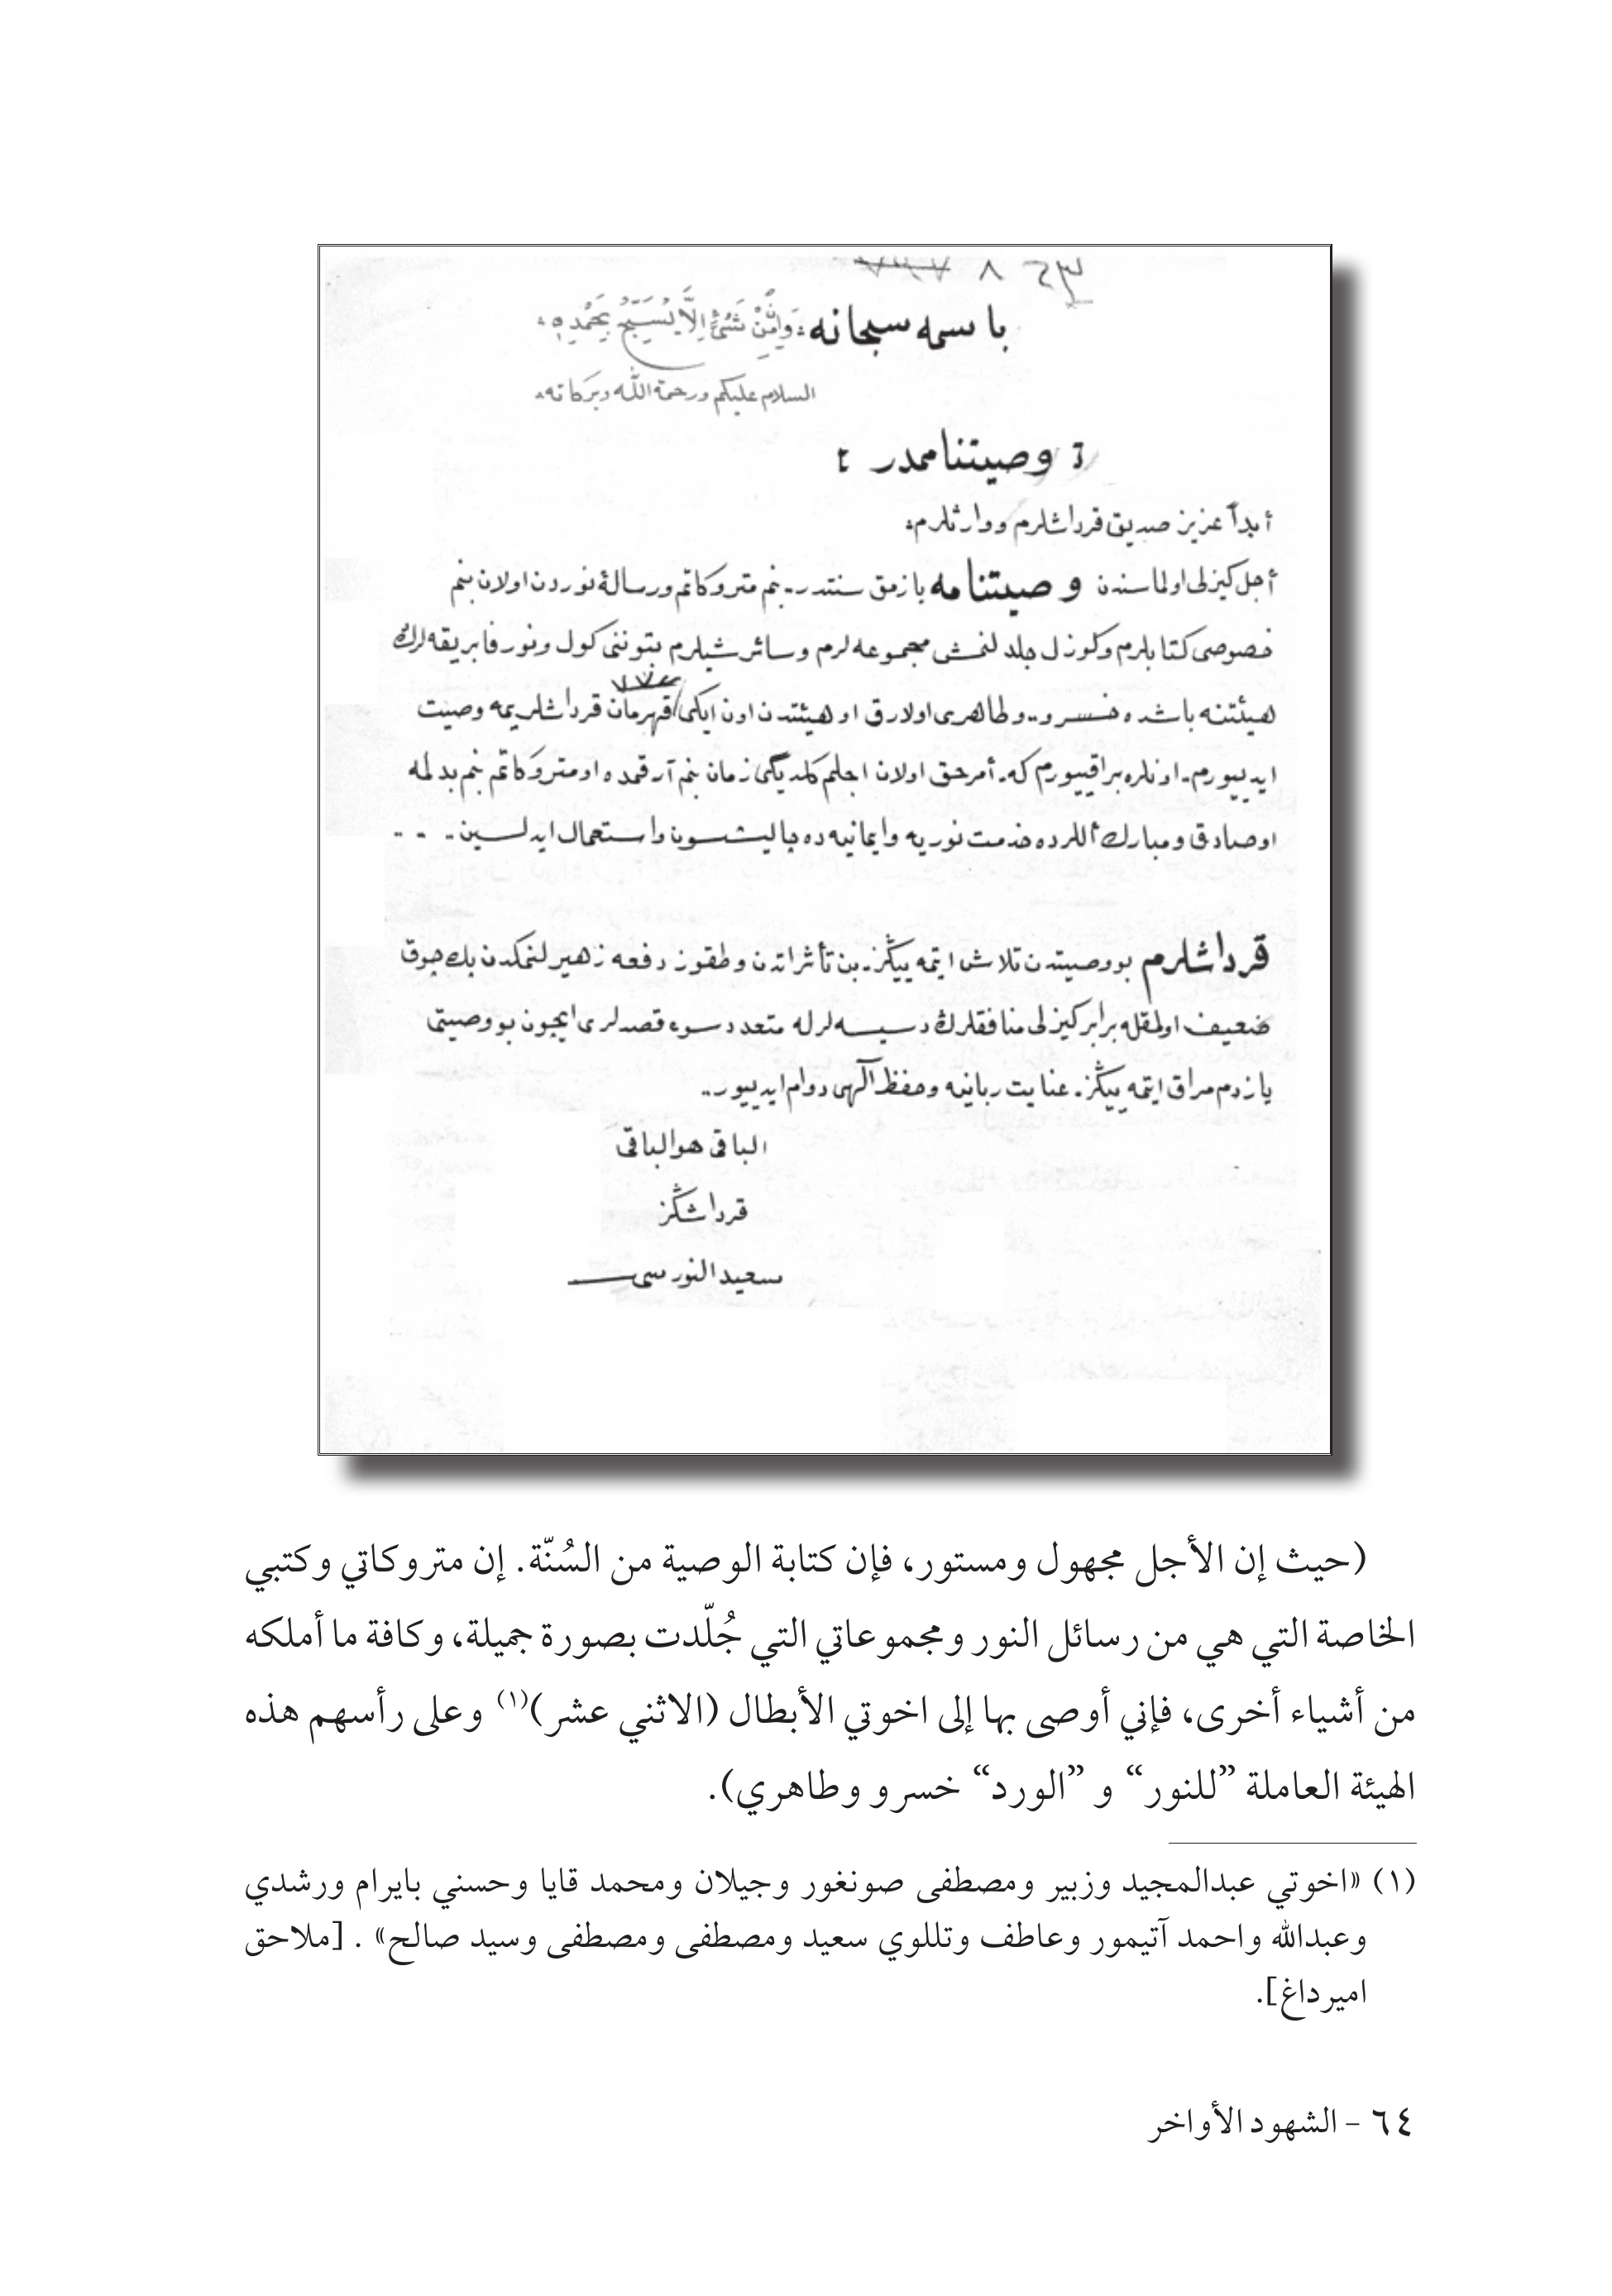 باسمه سبحانه: وَاِنْ مِنْ شَیْءٍ اِلَّا یُسَبِّحُ بِحَمْدِهٖ
السلام عليكم ورحمة الله وبركاته
وصيتنامه‌در :
أبداً عزيز صديق قرداشلرم ووارثلرم؛
أجل كيزلى اولماسندن وصيتنامه يازمق سنتدر. بنم متروكاتم ورسالۀ نوردن اولان بنم
خصوصى كتابلرم وكوزل جلدلنمش مجموعه‌لرم وسائر شيلرم بتوننى كول ونور فابريقه‌لرڭ
هيئتنه باشده خسرو.. وطاهرى اولارق او هيئتدن اون ايكى قهرمان قرداشلريمه وصيت
ايدييورم. اونلره براقييورم كه. أمر حق اولان اجلم كلديگى زمان بنم آرقمده او متروكاتم بنم بدلمه
او صادق ومبارك أللرده خدمت نوريه وايمانيه ده چاليشسون واستعمال ايدلسين. - - ..
قرداشلرم بو وصيتدن تلاش ايتمه ييڭز. بن تأثراتدن وطقوز دفعه زهيرلنمكدن پك چوق
ضعيف اولمقله برابر كيزلى منافقلرڭ دسيسه لرله متعدد سوء قصدلرى ايچون بو وصيتى
يازدم مراق ايتمه ييڭز. عنايت ربانيه وحفظ آلٓهى دوام ايدييور..
الباقى هو الباقى
قرداشڭز
سعيد النورسى
(حيث إن الأجل مجهول ومستور، فإن كتابة الوصية من السُنّة. إن متروكاتي وكتبي
الخاصة التي هي من رسائل النور ومجموعاتي التي جُلّدت بصورة جميلة، وكافة ما أملكه
من أشياء أخرى، فإني أوصى بها إلى اخوتي الأبطال (الاثني عشر)(١) وعلى رأسهم هذه
الهيئة العاملة ”للنور“ و ”الورد“ خسرو وطاهري).
(١) «اخوتي عبدالمجيد وزبير ومصطفى صونغور وجيلان ومحمد قايا وحسني بايرام ورشدي
وعبدالله واحمد آتيمور وعاطف وتللوي سعيد ومصطفى ومصطفى وسيد صالح» . [ملاحق
اميرداغ].
٦٤ – الشهود الأواخر